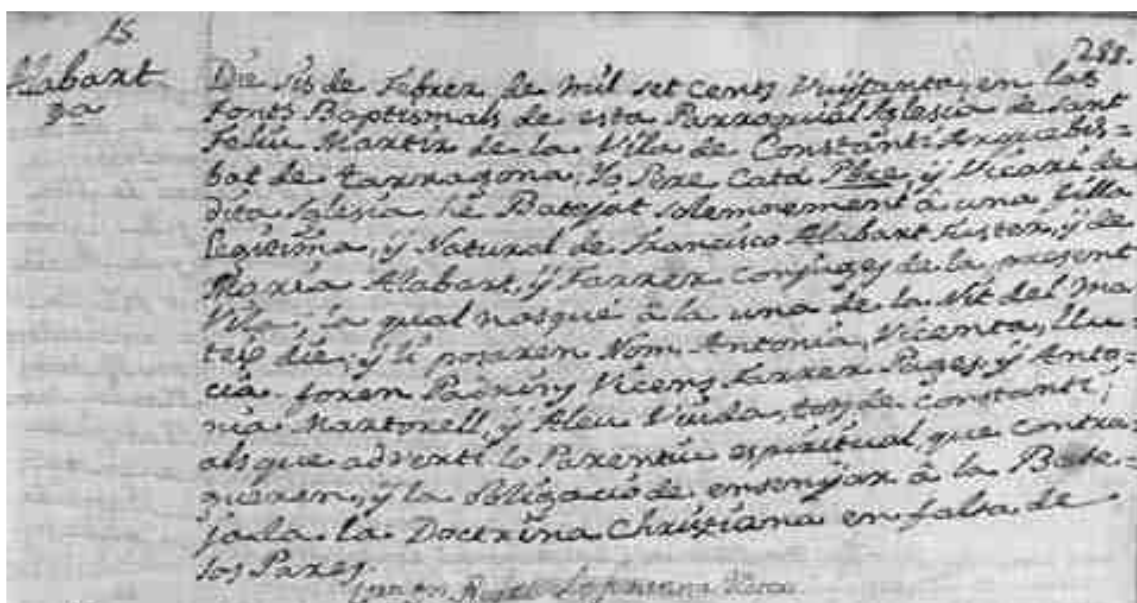 15
288.
Alabart
Die sis de Febrer de mil set cents Vuytanta, en las
fonts Baptismals de esta Parraquial Iglesia de sant
Feliu Martir de la Vila de Constantí Arquebis=
bat de tarragona; Yo Pere Catá Pbre. ÿ Vicari de
dita Iglesia hé Batejat solemnement à una filla
llegitima, ÿ Natural de Francisco Alabart Fuster, ÿ de
Maria Alabart, ÿ Farrer conjuges de la present
Vila, la qual nasqué à la una de la Nit del ma
teix die, ÿ li posaren Nom Antonia, Vicenta, Llu=
cia. foren Padrins Vicens Ferrer Pages, ÿ Anto=
nia Martorell, ÿ Aleu Viuda, tots de Constantí;
als que advertí lo Parentiu espiritual, que contra=
gueren, ÿ la obligació de ensenyar à la Bate=
jada la Doctrina Christiana en falta de
los Pares.